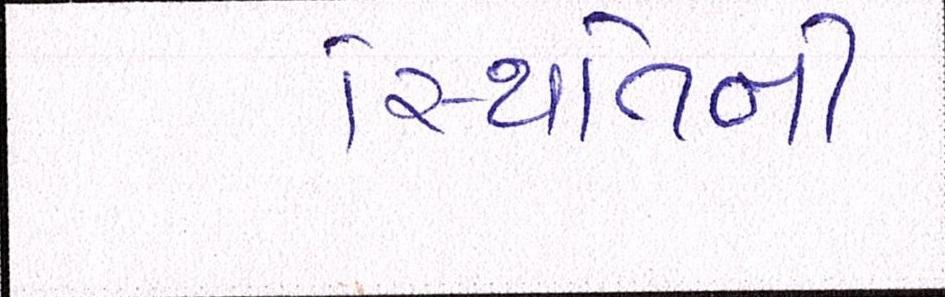 સ્થિતિની